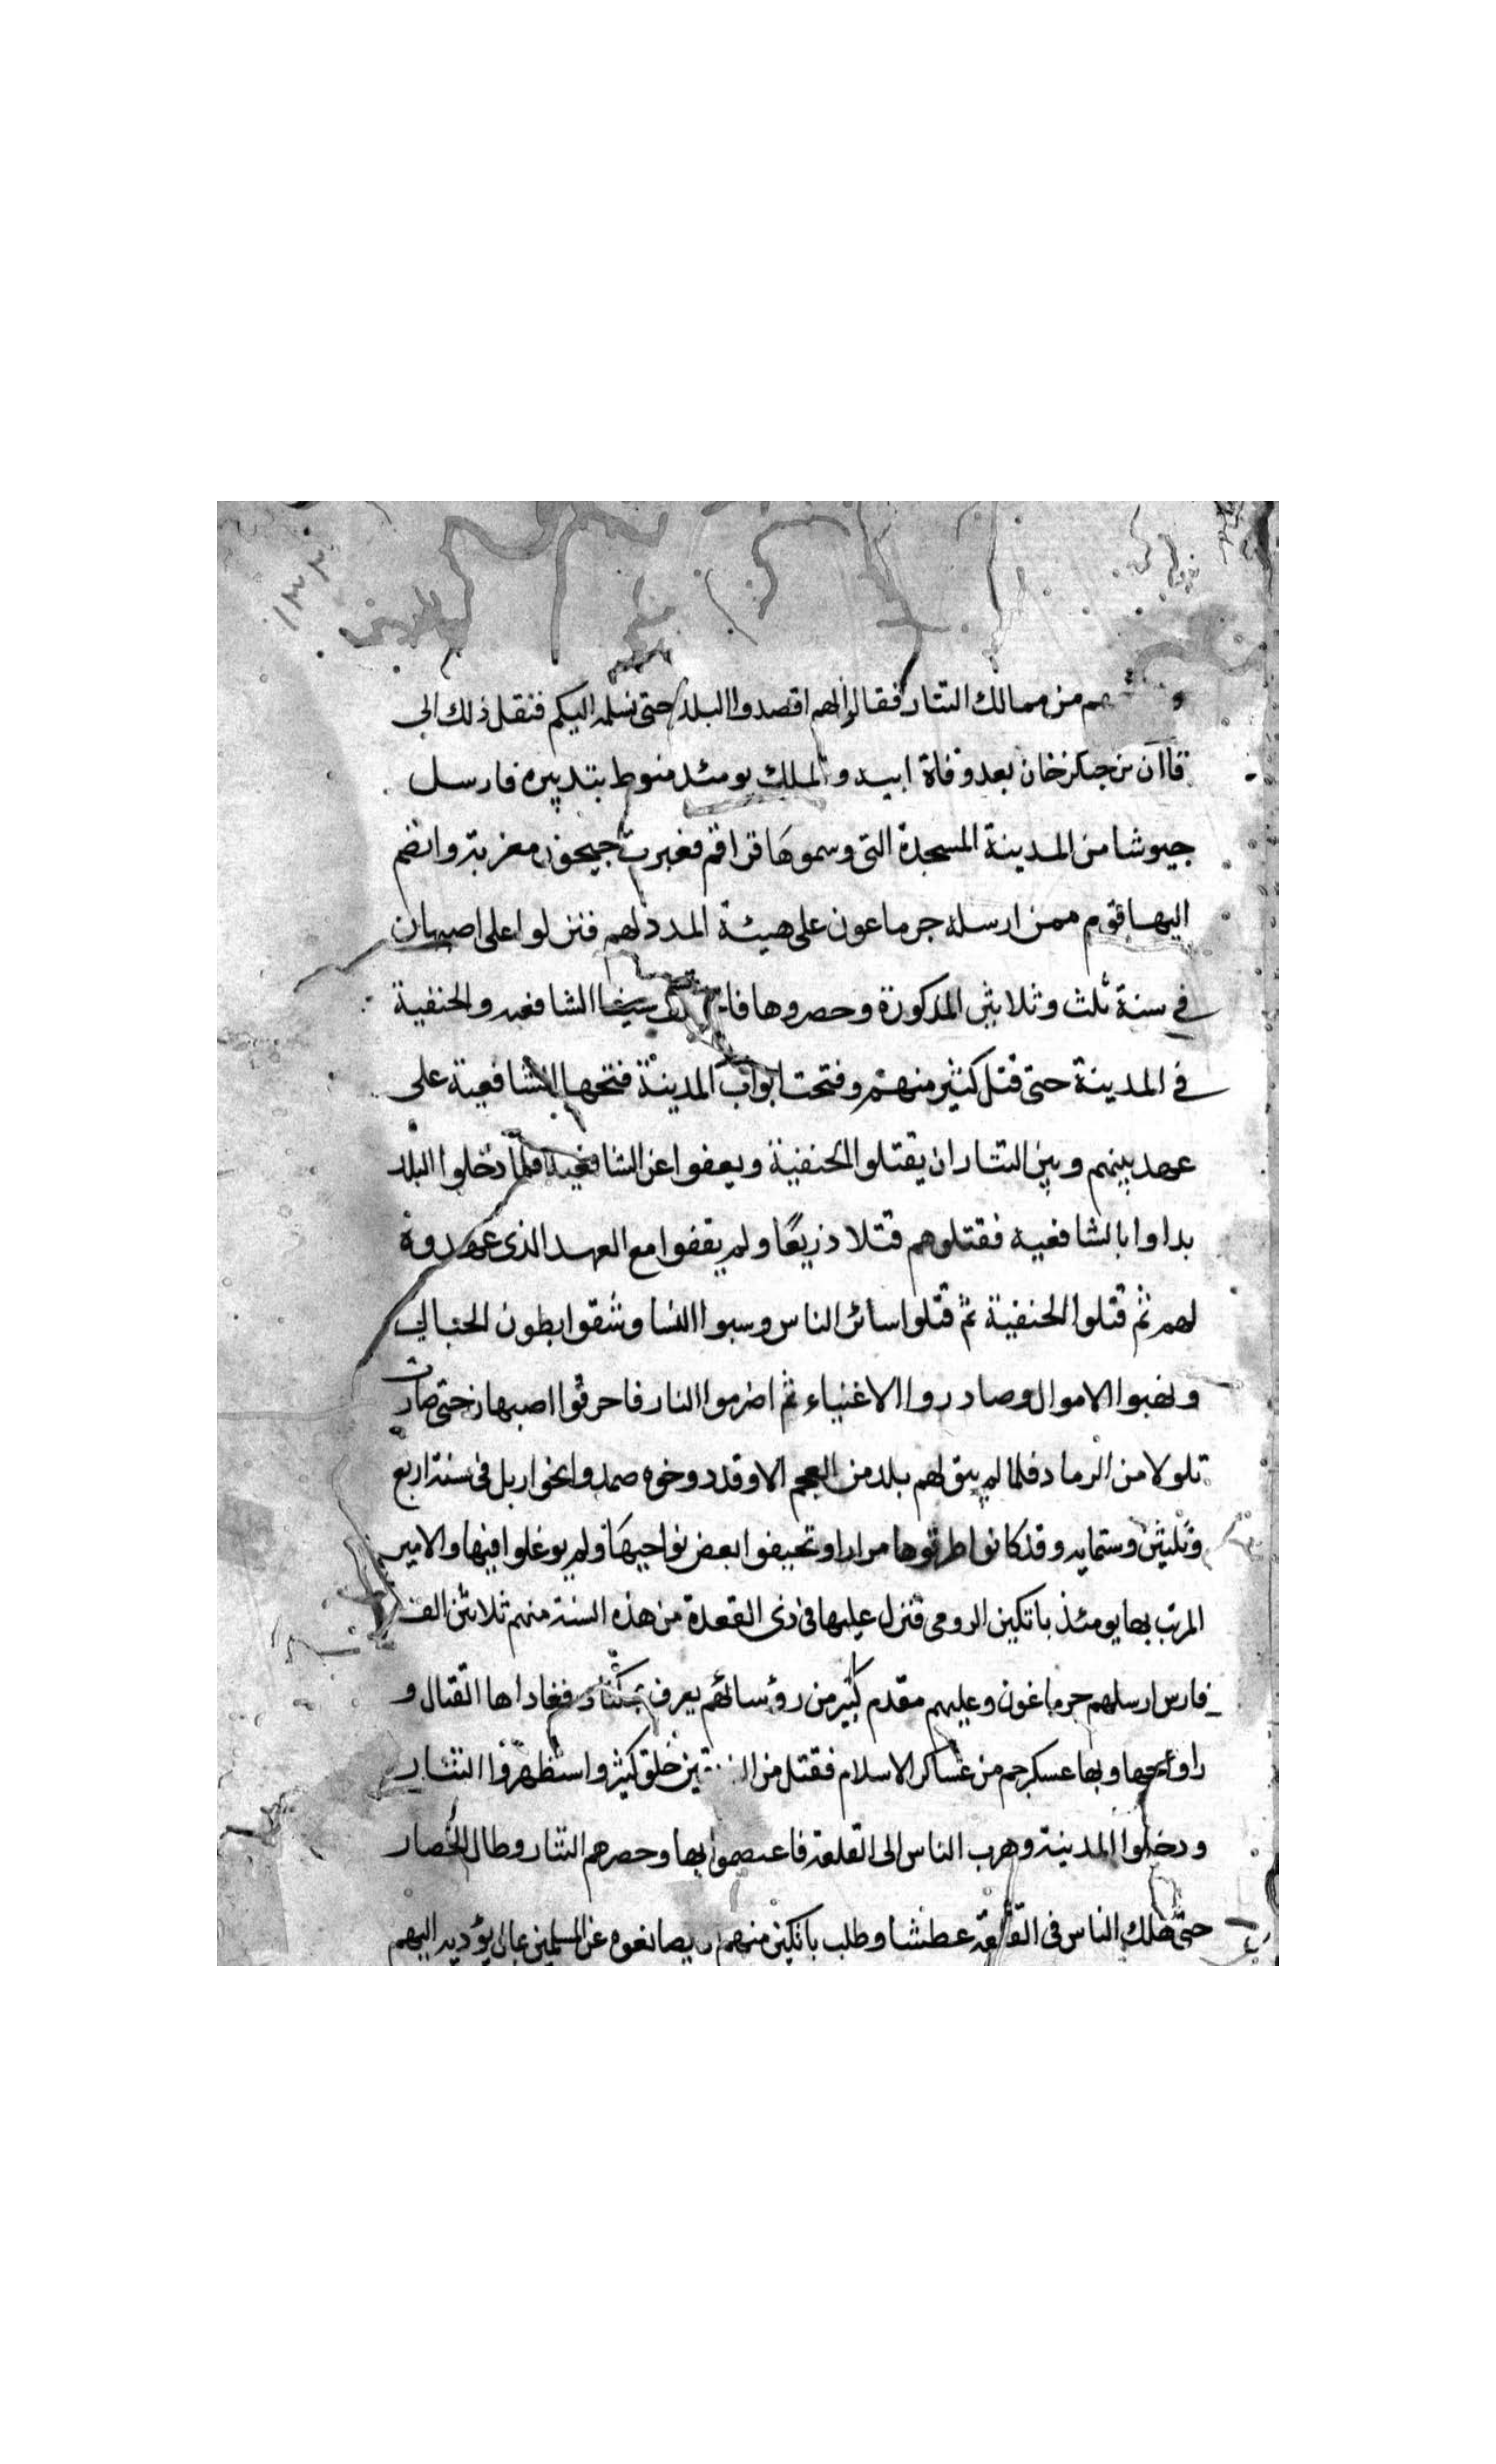 هم من ممالك التتار فقالوا لهم اقصدوا البلد حتى نسلمه اليكم فنقل ذلك الى
قاآن بن جنكزخان بعد وفاة ابيه والملك يومئذ منوط بتدبيره فارسل
جيوشا من المدينة المسجدة التى وسموها قراقم فعبرت جيحون مغربة وانضم
اليها قوم ممن ارسله جرماعون على هيئة المدد لهم فنزلوا على اصبهان
فى سنة ثلث وثلاثين المذكورة وحصروها الشافعيه والحنفية
فى المدينة حتى قتل كثير منهم وفتحت ابواب المدينة فتحها الشافعية على
عهد بينهم وبين التتار ان يقتلوا الحنفية ويعفوا عن الشافعية فلما دخلوا البلد
بداوا بالشافعية فقتلوهم قتلا ذريعا ولم يقفوا مع العهد الذى عهدوه
لهم ثم قتلوا الحنفية ثم قتلوا سائر الناس وسبوا النسا وشقوا بطون الحبالى
ونهبوا الاموال وصادروا الاغنياء ثم اضرموا النار فاحرقوا اصبهان حتى صارت
تلولا من الرماد فلما لم يبق لهم بلد من العجم الا وقد دوخوه صمدوا نحو اربل فى سنة اربع
وثلثين وستمايه وقد كانوا طرقوها مرارا وتحيفوا بعض نواحيها ولم يوغلوا فيها والامير
المرتب بها يومئذ باتكين الرومى فنزل عليها فى ذى القعدة من هذه السنة منهم ثلاثين الف
فارس ارسلهم جرماغون وعليهم مقدم كبير من رؤسائهم يعرف فغاداها القتال و
راوحها وبها عسكر جم من عساكر الاسلام فقتل من خلق كثير واستظهروا التتار
ودخلوا المدينة وهرب الناس الى القلعة فاعتصموا بها وحصرهم التتار وطال الحصار
حتى هلك الناس فى القلعة عطشا وطلب باتكين منهم يصانعوه عن المسلمين بمال يؤديه اليهم